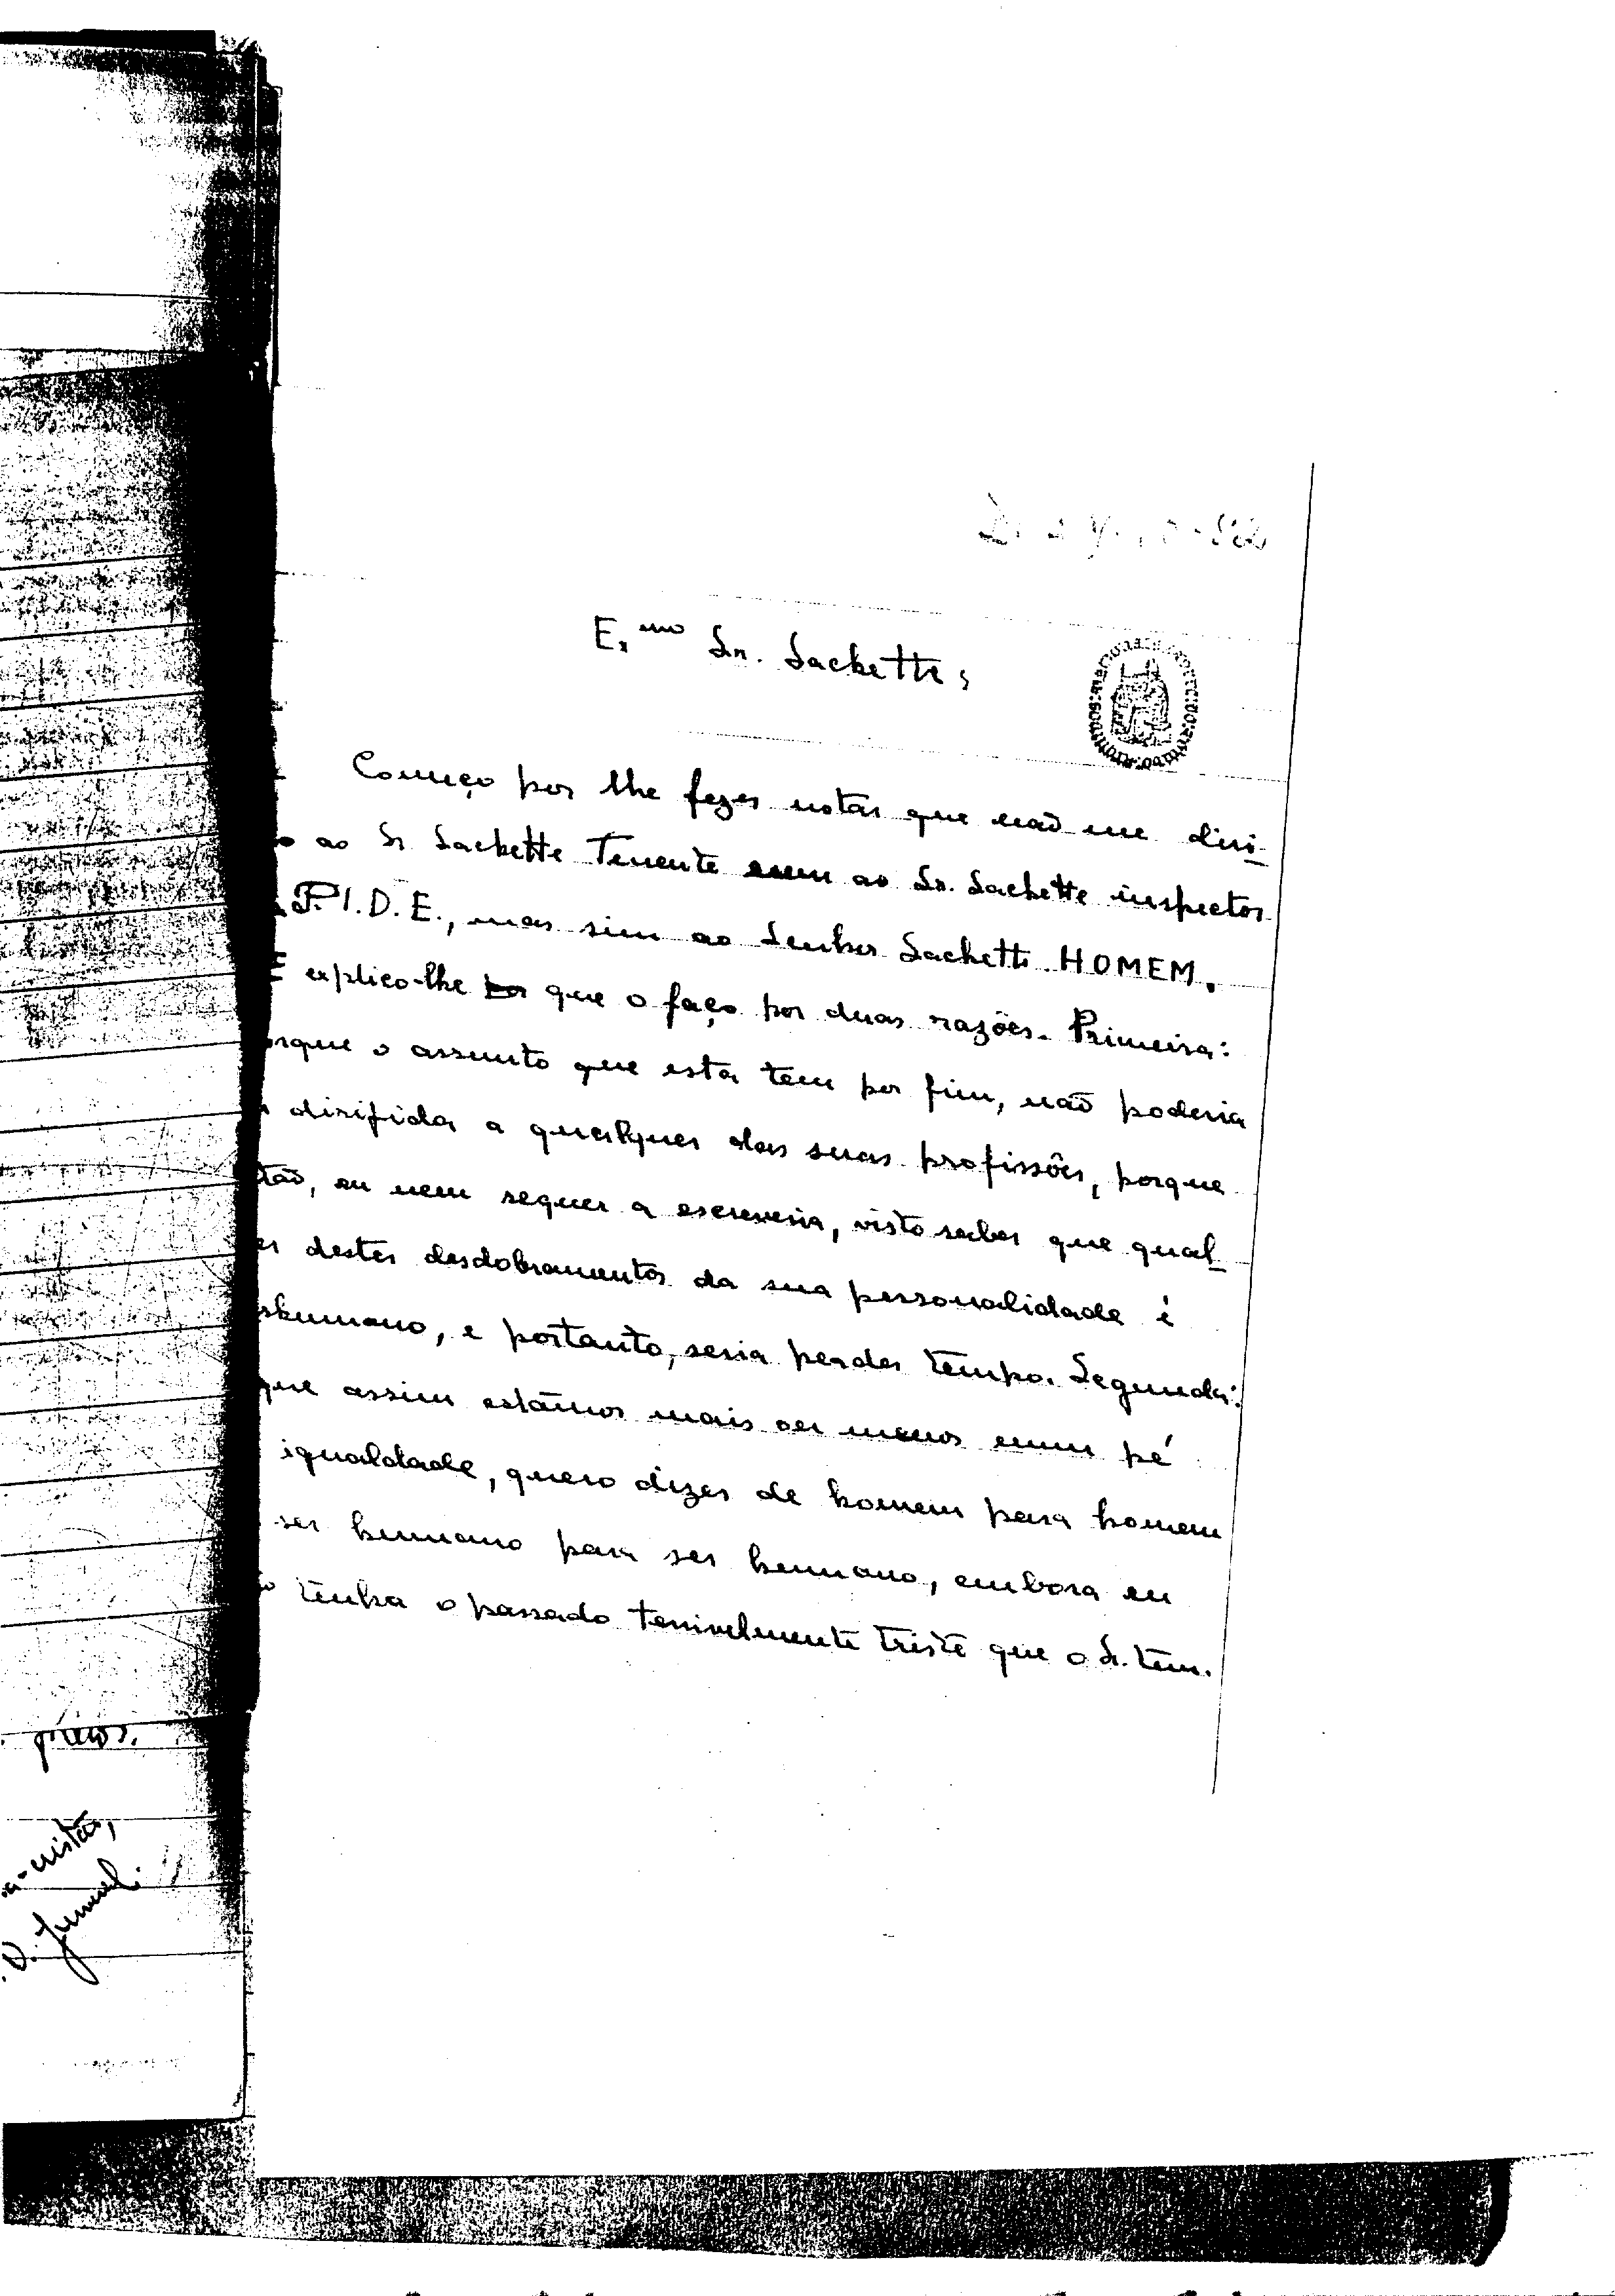 Ex.mo Sr. Sachetti;
Começo por lhe fazer notar que não me diri-
o ao Sr Sachetti Tenente nem ao Sr. Sachetti inspector
P.I.D.E., mas sim ao Senhor Sachetti HOMEM.
E explico-lhe que o faço por duas razões. Primeira:
rque o assunto que esta tem por fim, não poderia
dirigida a qualquer das suas profissões, porque
tão, eu nem sequer a escreveria, visto saber que qual-
er destes desdobramentos da sua personalidade é
shumano, e portanto, seria perder tempo. Segunda:
que assim estâmos mais ou menos num pé
igualdade, quero dizer de homem para homem
ser humano para ser humano, embora eu
o tenha o passado terrivelmente triste que o Sr. tem.
presos.
a-cristão,